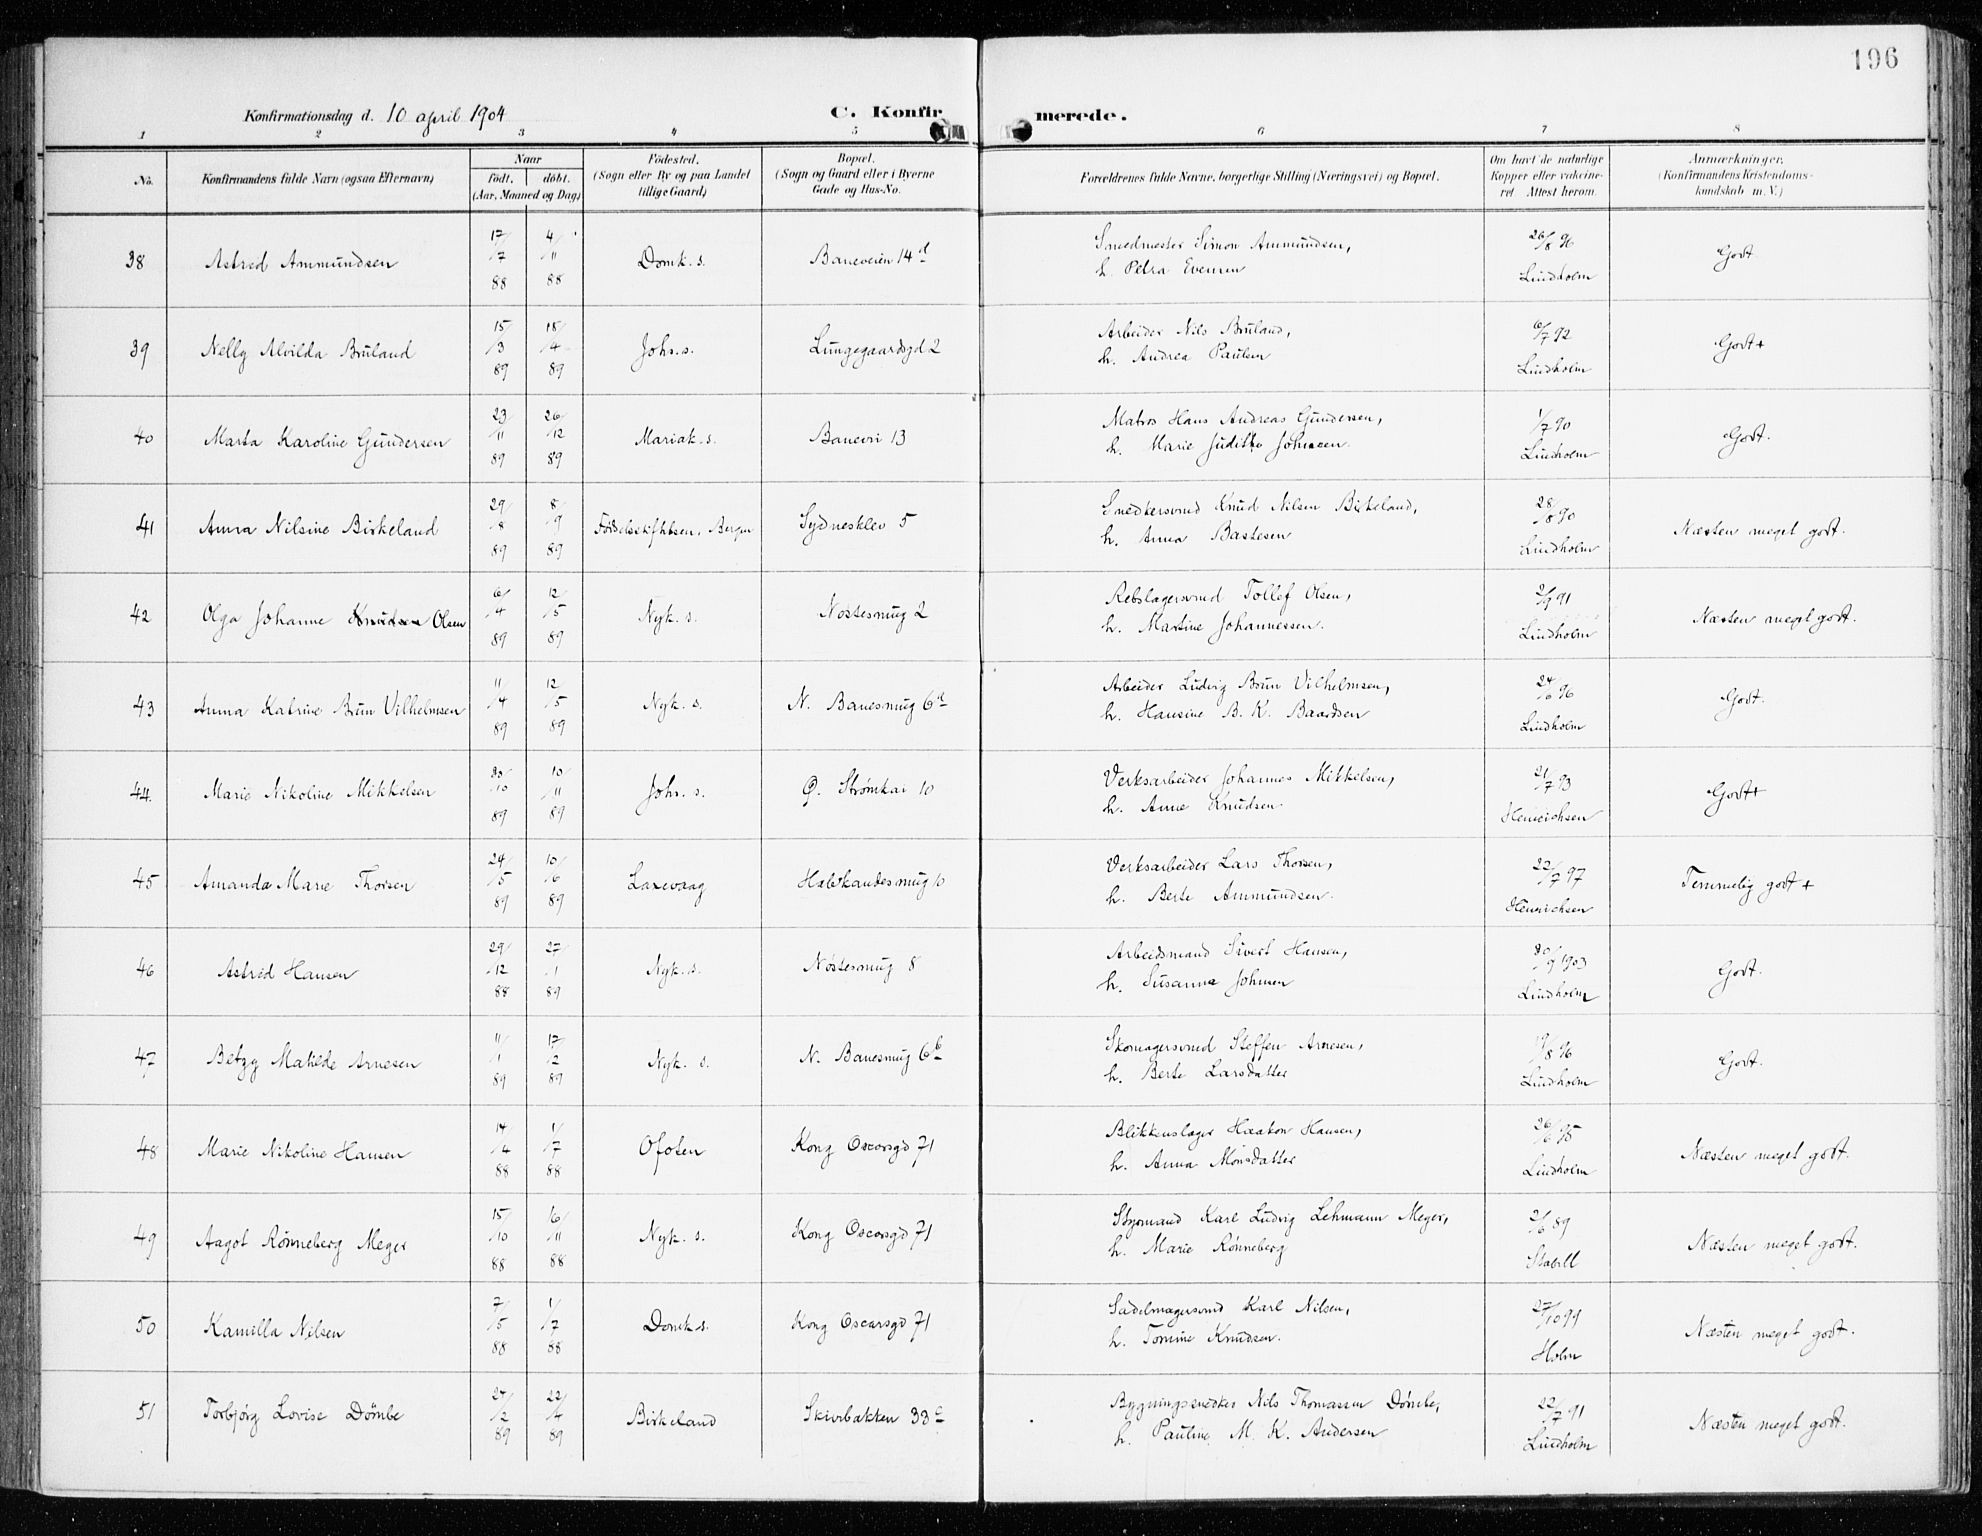 196
Konfirmationsdag d. 10 april 1904
C. Konfirmerede.
1 2 3 4 5 6 7 8
No.
Konfirmandens fulde Navn (ogsaa Efternavn)
Naar
født. døbt.
(Aar, Maaned og Dag)
Fødested.
(Sogn eller By og paa Landet
tillige Gaard)
Bopæl.
(Sogn og Gaard eller i Byerne
Gade og Hus-No.
Forældrenes fulde Navne, borgerlige Stilling (Næringsvei) og Bopæl.
Om havt de naturlige
Kopper eller vakcine-
ret. Attest herom.
Anmærkninger.
(Konfirmandens Kristendoms-
kundskab m. V.)
38 Astrid Ammundsen 17/7 88 4/11 88 Domk. s. Baneveien 14 d Smedmester Simon Ammundsen,
h. Petra Evensen 26/8 96 Lindholm Godt
39 Nelly Alvilda Bruland 15/3 89 18/4 89 Johs. s. Lungegaardsgd 2 Arbeider Nils Bruland,
h. Andrea Paulsen 6/7 92 Lindholm Godt+
40 Marta Karoline Gundersen 23/11 89 26/12 89 Mariak. s. Banevei 13 Matros Hans Andreas Gundersen,
h. Marie Judithe Johnsen. 1/7 90 Lindholm Godt.
41 Anna Nilsine Birkeland 29/8 89 8/9 89 Fødselsstiftelsen, Bergen Sydnesklev 5 Snedkersvend Knud Nilsen Birkeland,
h. Anna Bastesen 28/8 90 Lindholm Næsten meget godt.
42 Olga Johanne Knudsen Olsen 6/4 89 12/5 89 Nyk. s. Nøstesmug 2 Rebslagersvend Tollef Olsen,
h. Martine Johannessen. 2/9 91 Lindholm Næsten meget godt.
43 Anna Katrine Brun Vilhelmsen 11/4 89 12/5 89 Nyk. s. N. Banesmug 6 a Arbeider Ludvig Brun Vilhelmsen,
h. Hansine B. K. Baardsen 24/6 96 Lindholm Godt.
44. Marie Nikoline Mikkelsen 30/10 89 10/11 89 Johs. s. Ø. Strømkai 10 Verksarbeider Johannes Mikkelsen,
h. Anne Knudsen 21/7 93 Henrichsen Godt+
45 Amanda Marie Thorsen 24/5 89 10/6 89 Laxevaag Halvkandesmug 10 Verksarbeider Lars Thorsen,
h. Berte Ammundsen. 22/7 97 Henrichsen Temmelig godt +
46 Astrid Hansen 29/12 88 27/1 89 Nyk. s. Nøstesmug 8 Arbeidsmand Sivert Hansen,
h. Susanne Johnsen 30/9 1903 Lindholm Godt.
47 Betzy Matilde Arnesen 11/1 89 17/2 89 Nyk. s. N. Banesmug 6 b Skomagersvend Steffen Arnesen,
h. Berte Larsdatter 19/8 96 Lindholm Godt.
48 Marie Nikoline Hansen 14/4 88 1/7 88 Ofoten Kong Oscarsgd 71 Blikkenslager Haakon Hansen,
h. Anna Monsdatter 26/6 95 Lindholm Næsten meget godt.
49 Aagot Rønneberg Meyer 15/10 88 16/11 88 Nyk. s. Kong Oscarsgd 71 Styrmand Karl Ludvig Lehmann Meyer,
h. Marie Rønneberg 2/6 89 Næsten meget godt.
50 Kamilla Nilsen 7/5 88 1/7 88 Domk. s. Kong Oscarsgd 71 Sadelmagersvend Karl Nilsen,
h. Tomine Knudsen. 27/10 99 Holm Næsten meget godt.
51 Torbjørg Lovise Dømbe 27/2 89 22/4 89 Birkeland Skivebakken 33 c Bygningssnedker Nils Thomassen Dømbe,
h. Pauline M. K. Andersen 22/7 91 Lindholm Næsten meget godt.